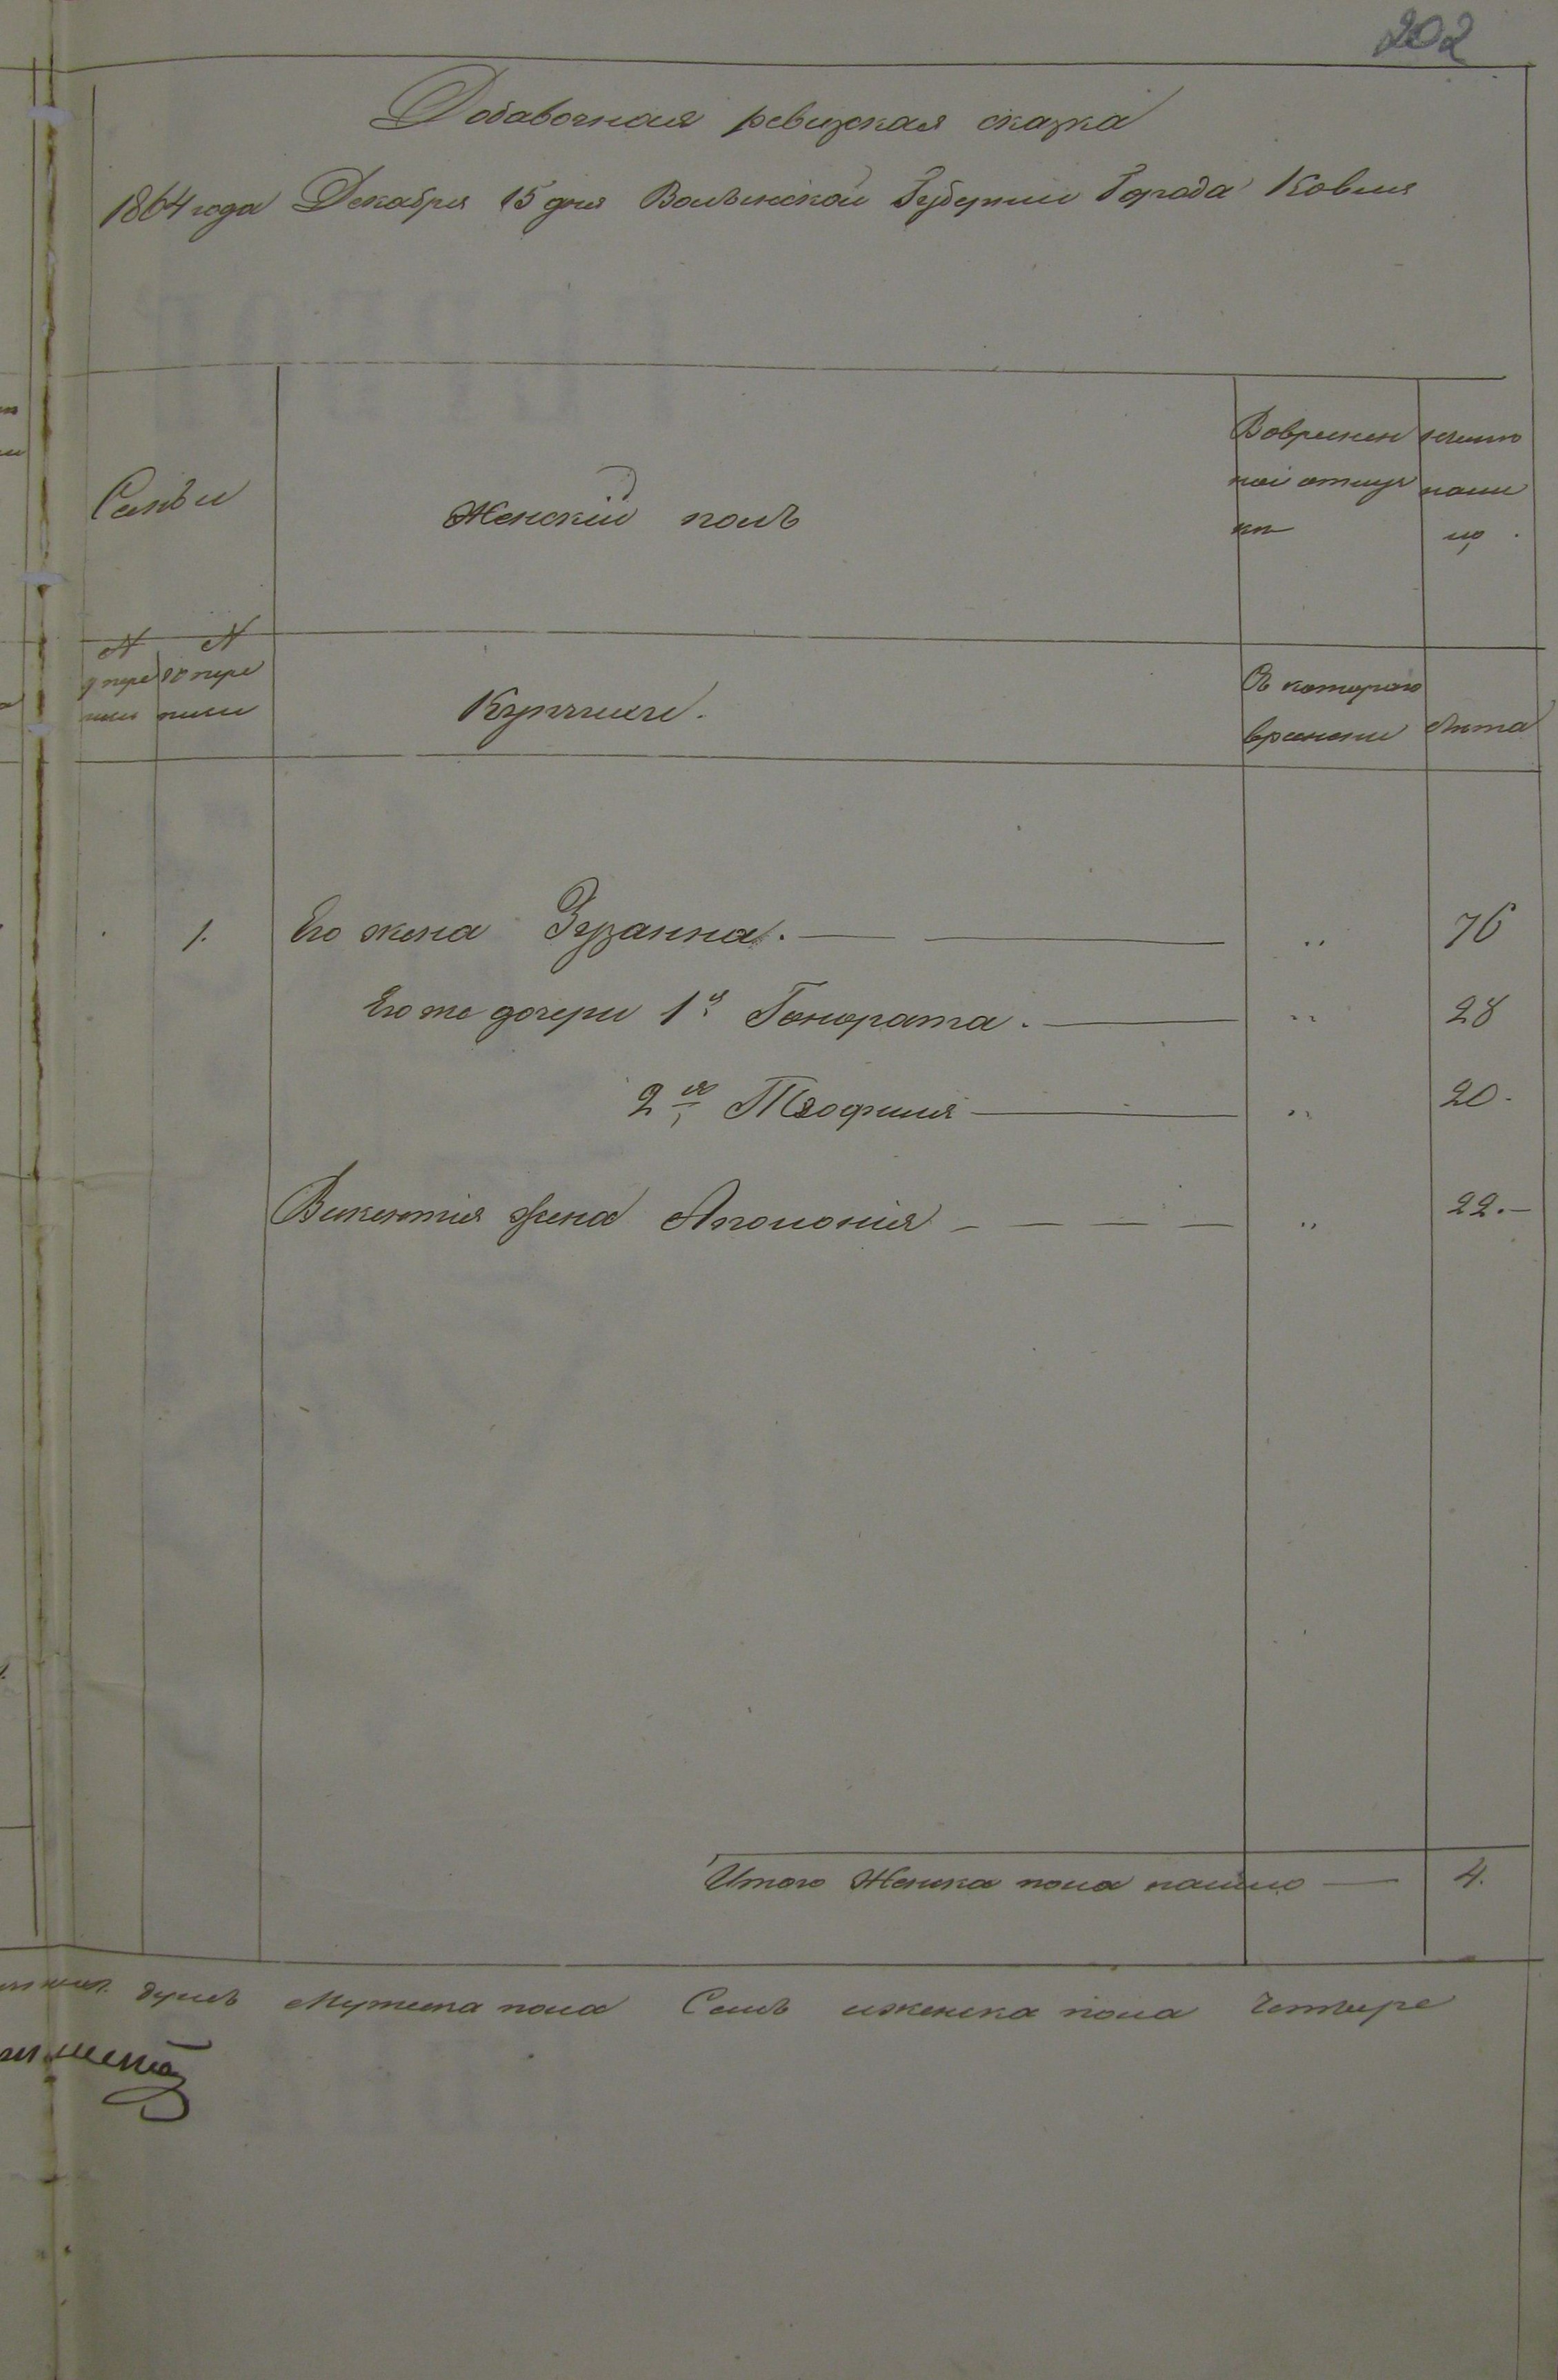 202
Добавочная ревизская сказка
1864 года Декабря 15 дня Волынской Губернии Города Ковля
Семьи
Женскій полъ
Вовремен
ной отлуч
ки
налицо
№ №
9 пере 10 пере
писи писи
Купчихи.
Съ котораго
времени
лѣта
1. Его жена Зузанна. — — „ 76
Его же дочери 1я Гонората. — „ 28
2я Теофилия — „ 20.
Викентія жена Аполонія - — — — „ 22.—
Итого Женска пола налицо — 4.
душъ Мужеска пола Семь и женска пола Четыре